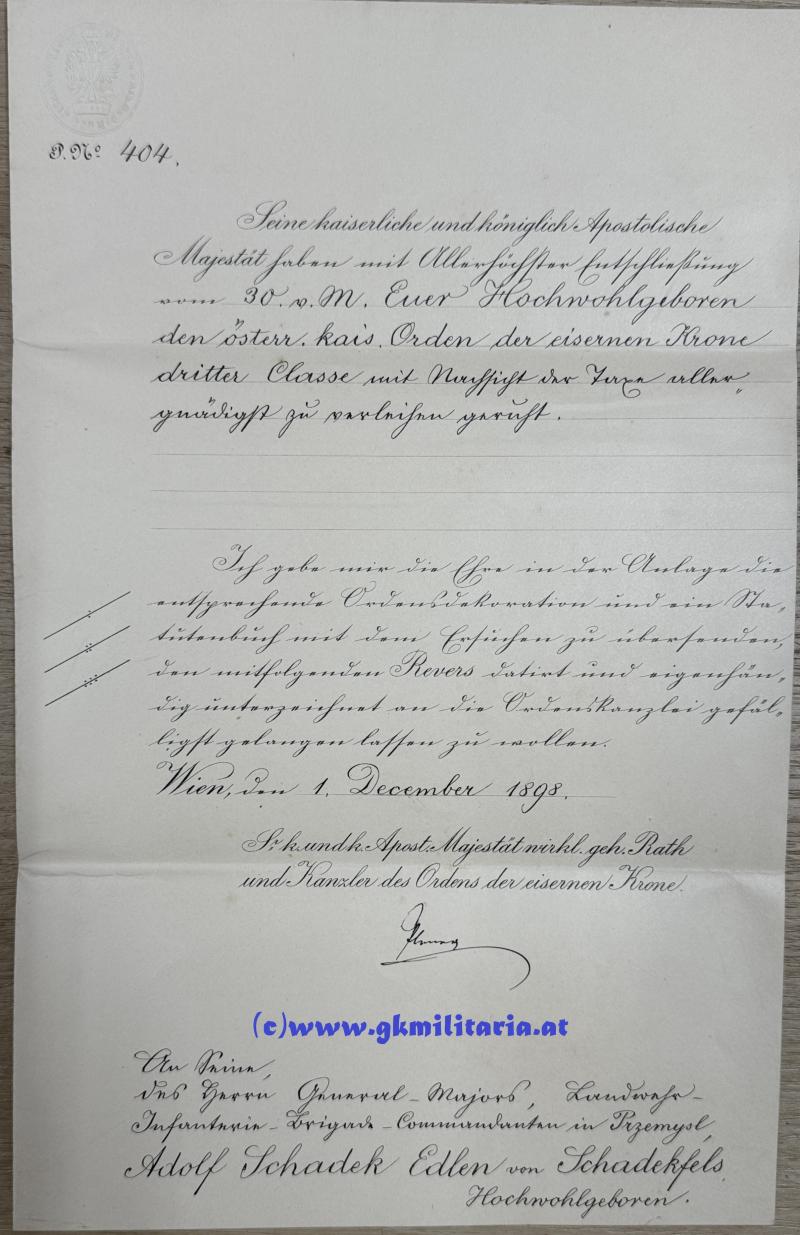 P. No 404.
Seine kaiserliche und königlich Apostolische
Majestät haben mit Allerhöchster Entschließung
vom 30. v. M. Euer Hochwohlgeboren
den österr. kais. Orden der eisernen Krone
dritter Classe mit Nachsicht der Taxe aller„
gnädigst zu verleihen geruht.
Ich gebe mir die Ehre in der Anlage die
entsprechende Ordensdekoration und ein Sta„
tutenbuch mit dem Ersuchen zu übersenden,
den mitfolgenden Revers datirt und eigenhän„
dig unterzeichnet an die Ordenskanzlei gefäl„
ligst gelangen lassen zu wollen.
Wien, den 1. December 1898.
Sr. k. und k. Apost. Majestät wirkl. geh. Rath
und Kanzler des Ordens der eisernen Krone.
(c)www.gkmilitaria.at
An Seine,
des Herrn General-Majors, Landwehr-
Infanterie-Brigade-Commandanten in Przemysl,
Adolf Schadek Edlen von Schadekfels
Hochwohlgeboren.